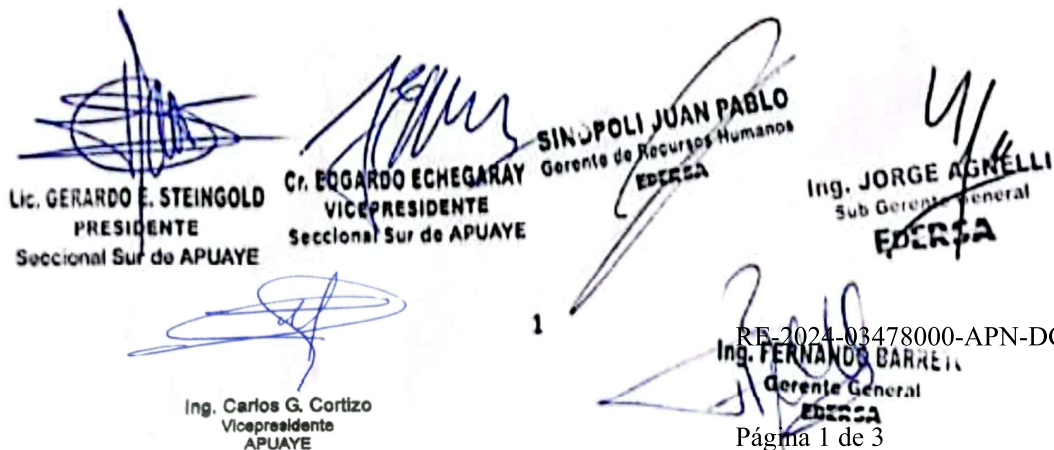 Lic. GERARDO E. STEINGOLD
PRESIDENTE
Seccional Sur de APUAYE
Cr. EDGARDO ECHEGARAY
VICEPRESIDENTE
Seccional Sur de APUAYE
SINOPOLI JUAN PABLO
Gerente de Recursos Humanos
EDERSA
Ing. JORGE AGNELLI
Sub Gerente General
EDERSA
Ing. Carlos G. Cortizo
Vicepresidente
APUAYE
1
RE-2024-03478000-APN-DG
Ing. FERNANDO
Gerente General
EDERSA
Página 1 de 3